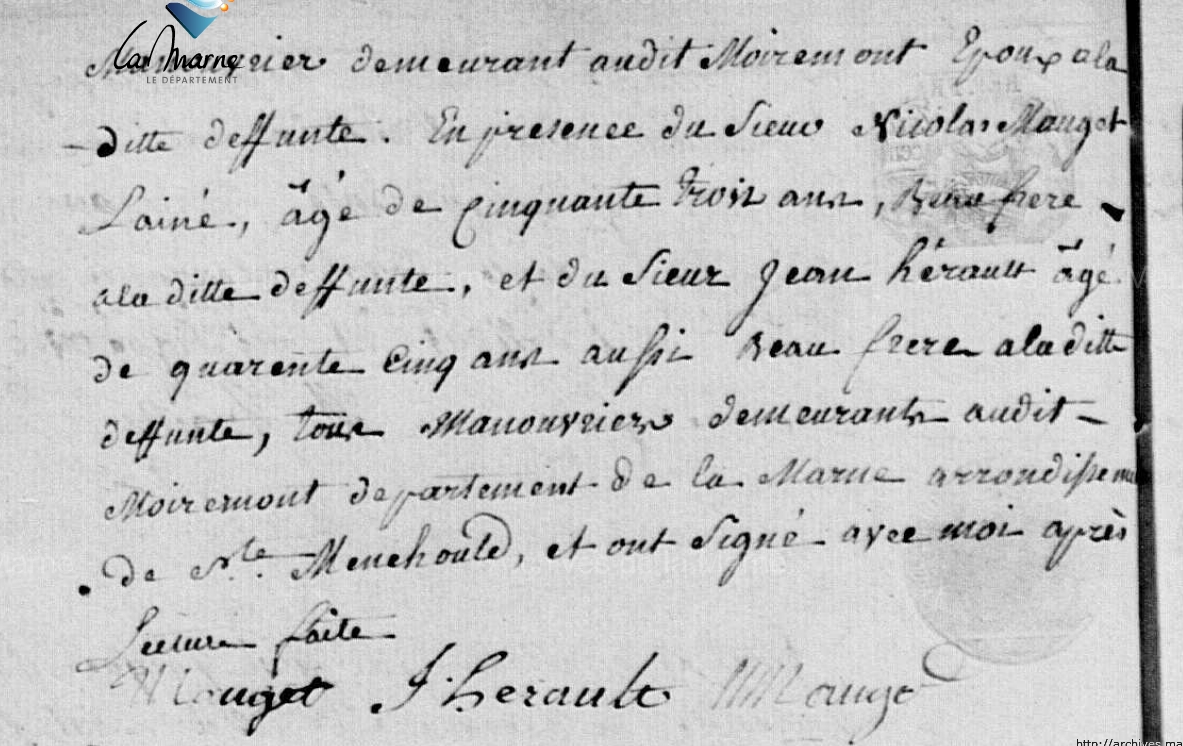 La Marne
LE DÉPARTEMENT
Manouvrier demeurant audit Moiremont Epoux ala
ditte deffunte. En presence du Sieur Nicolas Mauget
Lainé, âgé de Cinquante trois ans, Beau frere
ala ditte deffunte, et du Sieur Jean hérault âgé
de quarente Cinq ans aussi Beau frere ala ditte
deffunte, tous Manouvriers demeurants audit
Moiremont departement de la Marne arrondissement
de Ste. Menehould, et ont Signé avec moi après
Lecture faite
Mauget J. herault Mauget
http://archives.ma